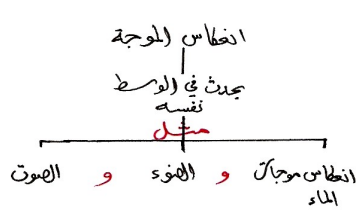 انعكاس الموجة
يحدث في الوسط
نفسه
مثل
انعكاس موجات و الضوء و الصوت
الماء